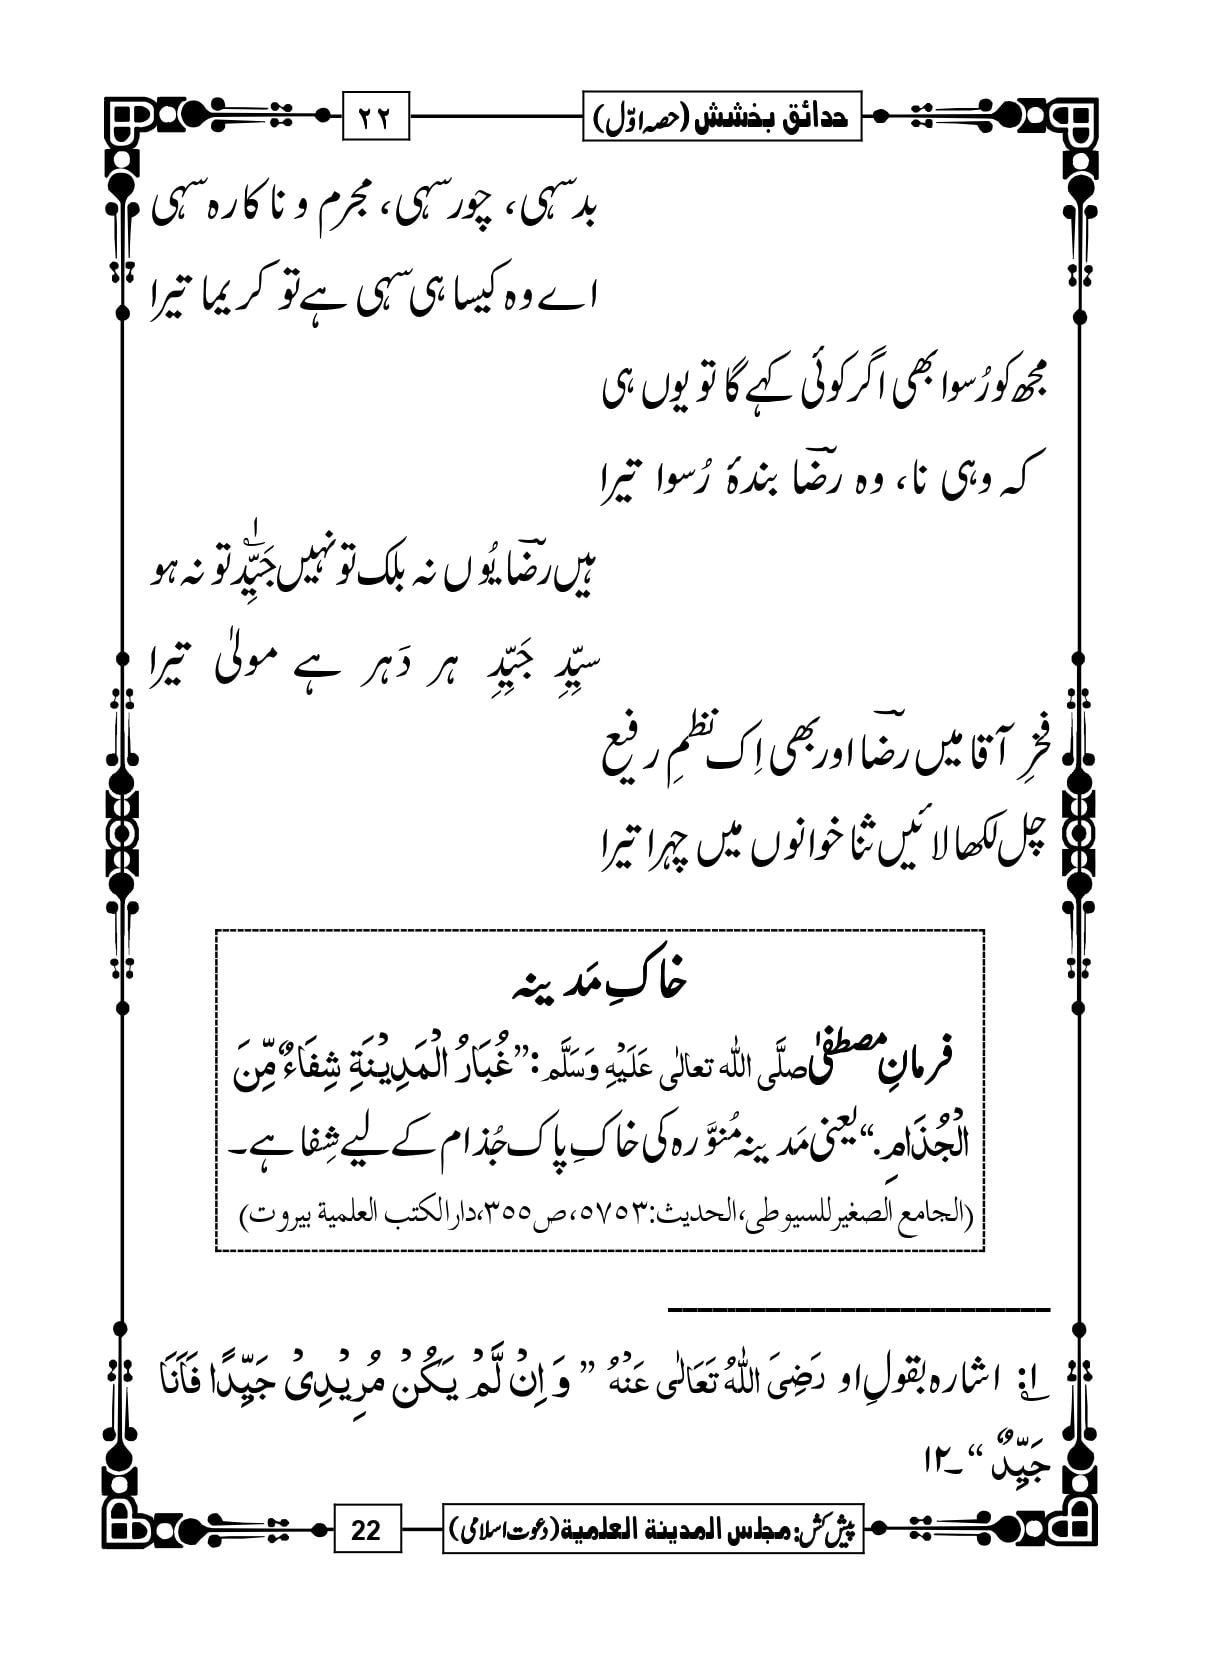 حدائق بخشش (حصہ اوّل)
۲۲
بدسہی، چور سہی، مجرم و ناکارہ سہی
اے وہ کیسا ہی سہی ہے تو کریما تیرا
مجھ کو رُسوا بھی اگر کوئی کہے گا تو یوں ہی
کہ وہی نا، وہ رضؔا بندۂ رُسوا تیرا
ہیں رضؔا یُوں نہ بلک تو نہیں جَیِّد تو نہ ہو
سیِّدِ جَیِّدِ ہر دَہر ہے مولیٰ تیرا
فخرِ آقا میں رضؔا اور بھی اِک نظمِ رفیع
چل لکھا لائیں ثنا خوانوں میں چہرا تیرا
خاکِ مَدینہ
فرمانِ مصطفیٰ صلَّی اللّٰہ تعالٰی عَلَیْہِ وَسَلَّم :”غُبَارُ الْمَدِیْنَۃِ شِفَاءٌ مِّنَ
الْجُذَامِ.“ یعنی مَدینہ مُنوَّرہ کی خاکِ پاک جُذام کے لیے شِفا ہے۔
(الجامع الصغیر للسیوطی،الحدیث:۵۷۵۳،ص۳۵۵،دارالکتب العلمیۃ بیروت)
۱؎: اشارہ بقولِ او رَضِیَ اللّٰہُ تَعَالٰی عَنْہُ ” وَ اِنْ لَّمْ یَکُنْ مُرِیْدِیْ جَیِّدًا فَاَنَا
جَیِّدٌ “۔۱۲
پیش کش: مجلس المدینۃ العلمیۃ (دعوت اسلامی)
22